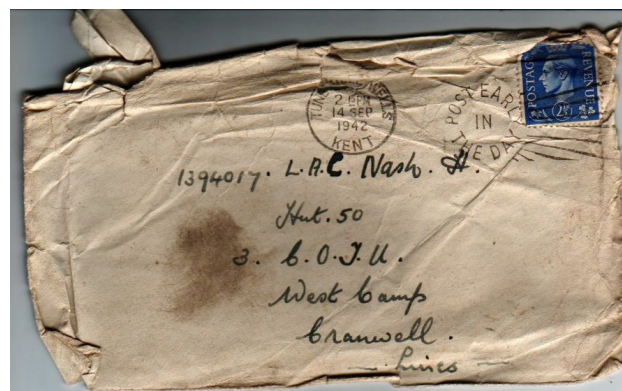 TUNBRIDGE WELLS
2 PM
14 SEP
1942
KENT
POST EARLY
IN
THE DAY
POSTAGE
REVENUE
2½
1394017. L.A.C. Nash. H.
Hut. 50
3. C.O.T.U.
West Camp
Cranwell.
— Lincs —